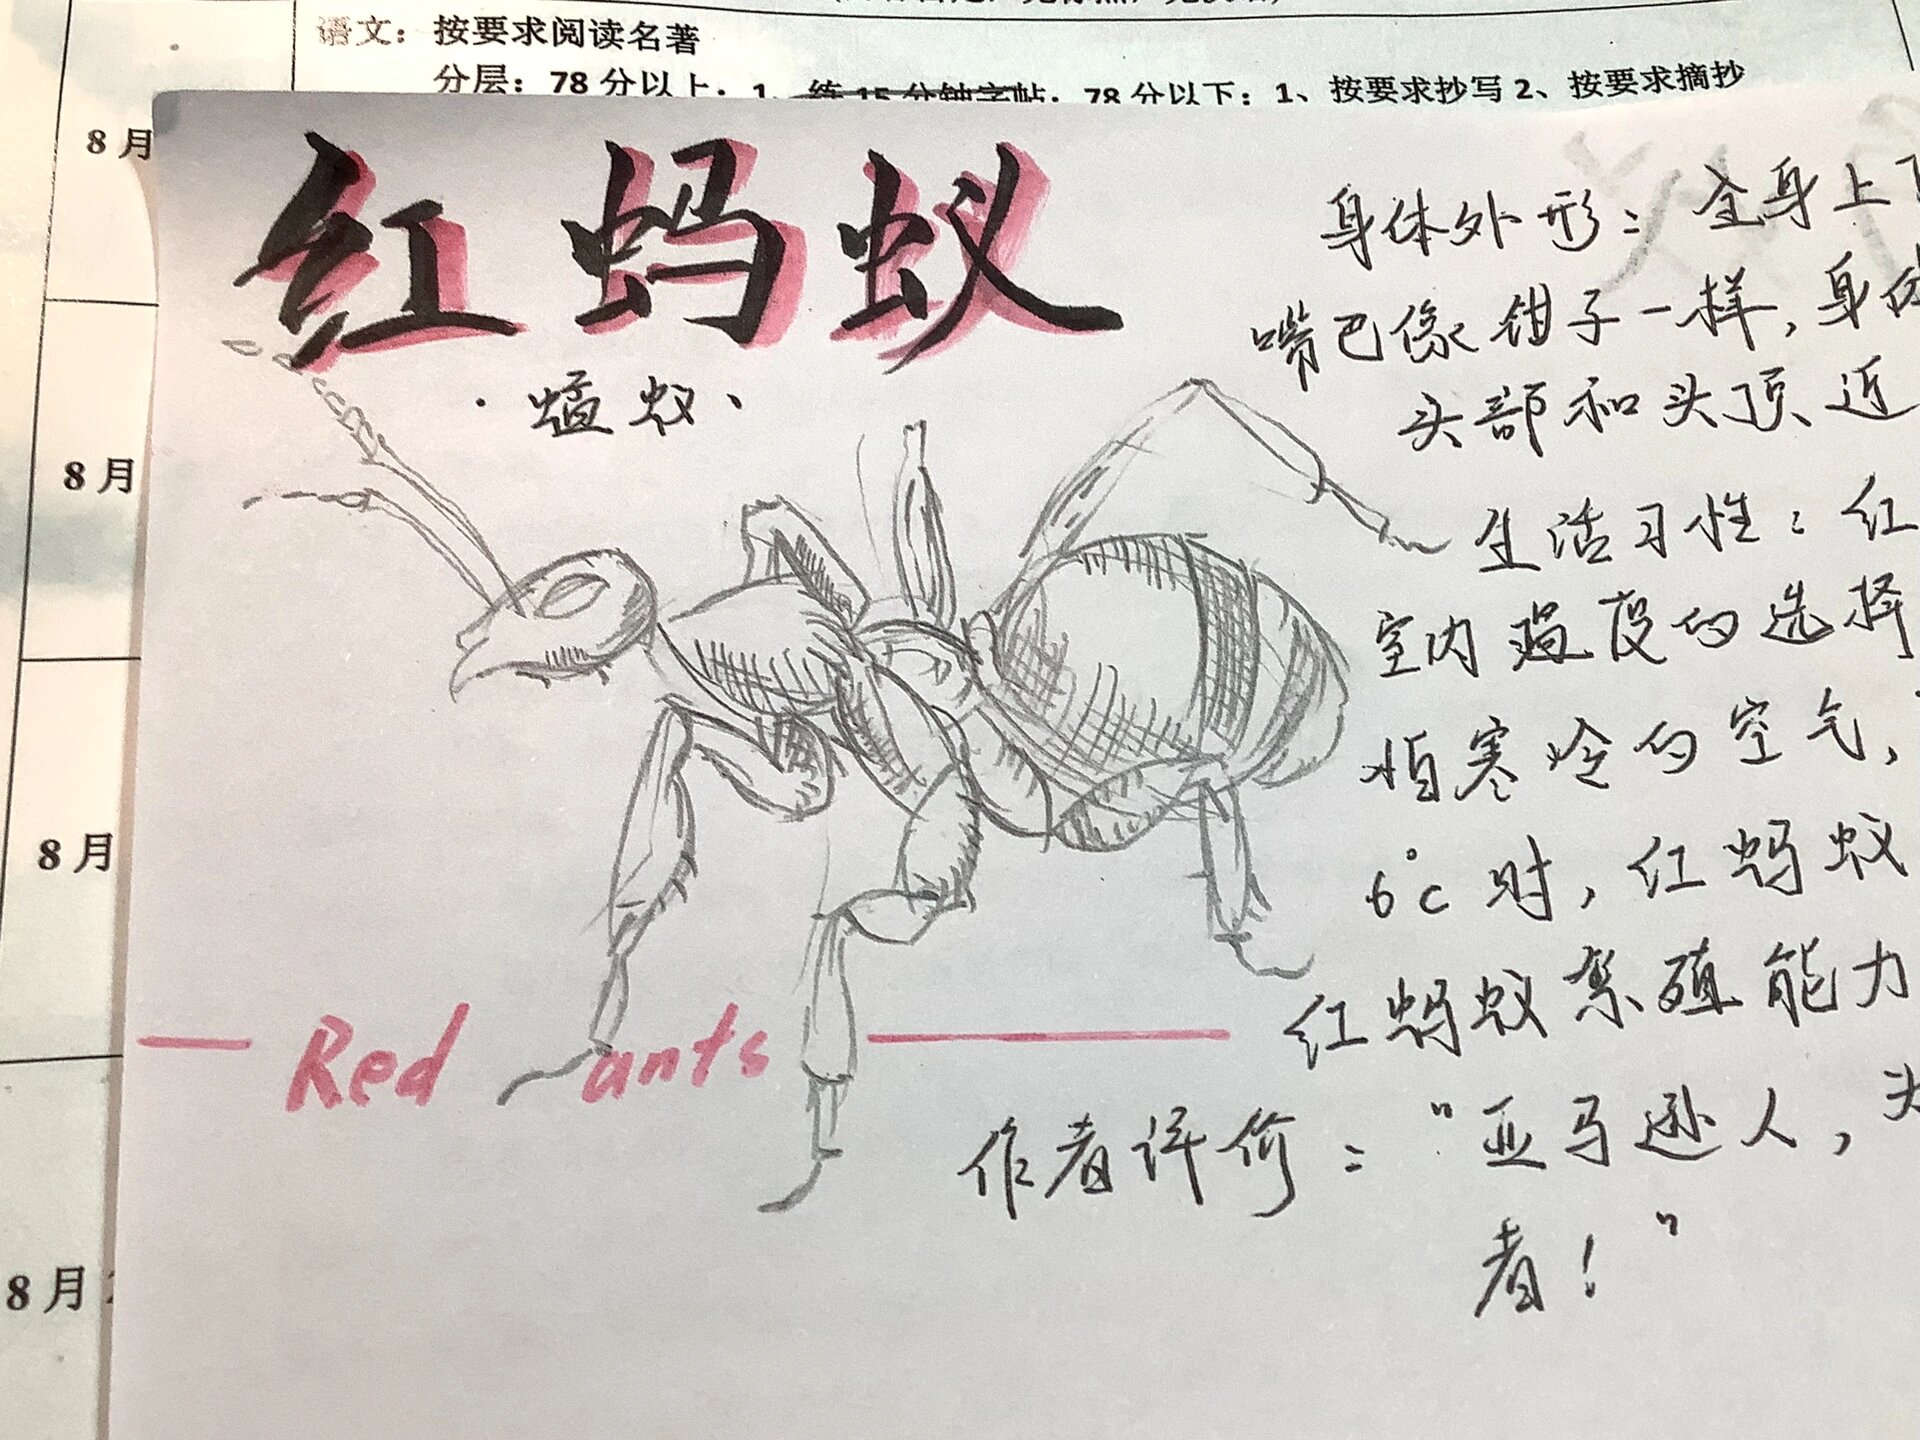 语文：按要求阅读名著
分层：78分以上：1、练15分钟字帖；78分以下：1、按要求抄写 2、按要求摘抄
8月
8月
8月
8月
红蚂蚁
·蜢蚁、
身体外形：全身上下
嘴巴像钳子一样，身体
头部和头顶近
生活习性：红
室内温度的选择
怕寒冷的空气，
6℃时，红蚂蚁
红蚂蚁繁殖能力
Red ants
作者评价："亚马逊人，
者！"